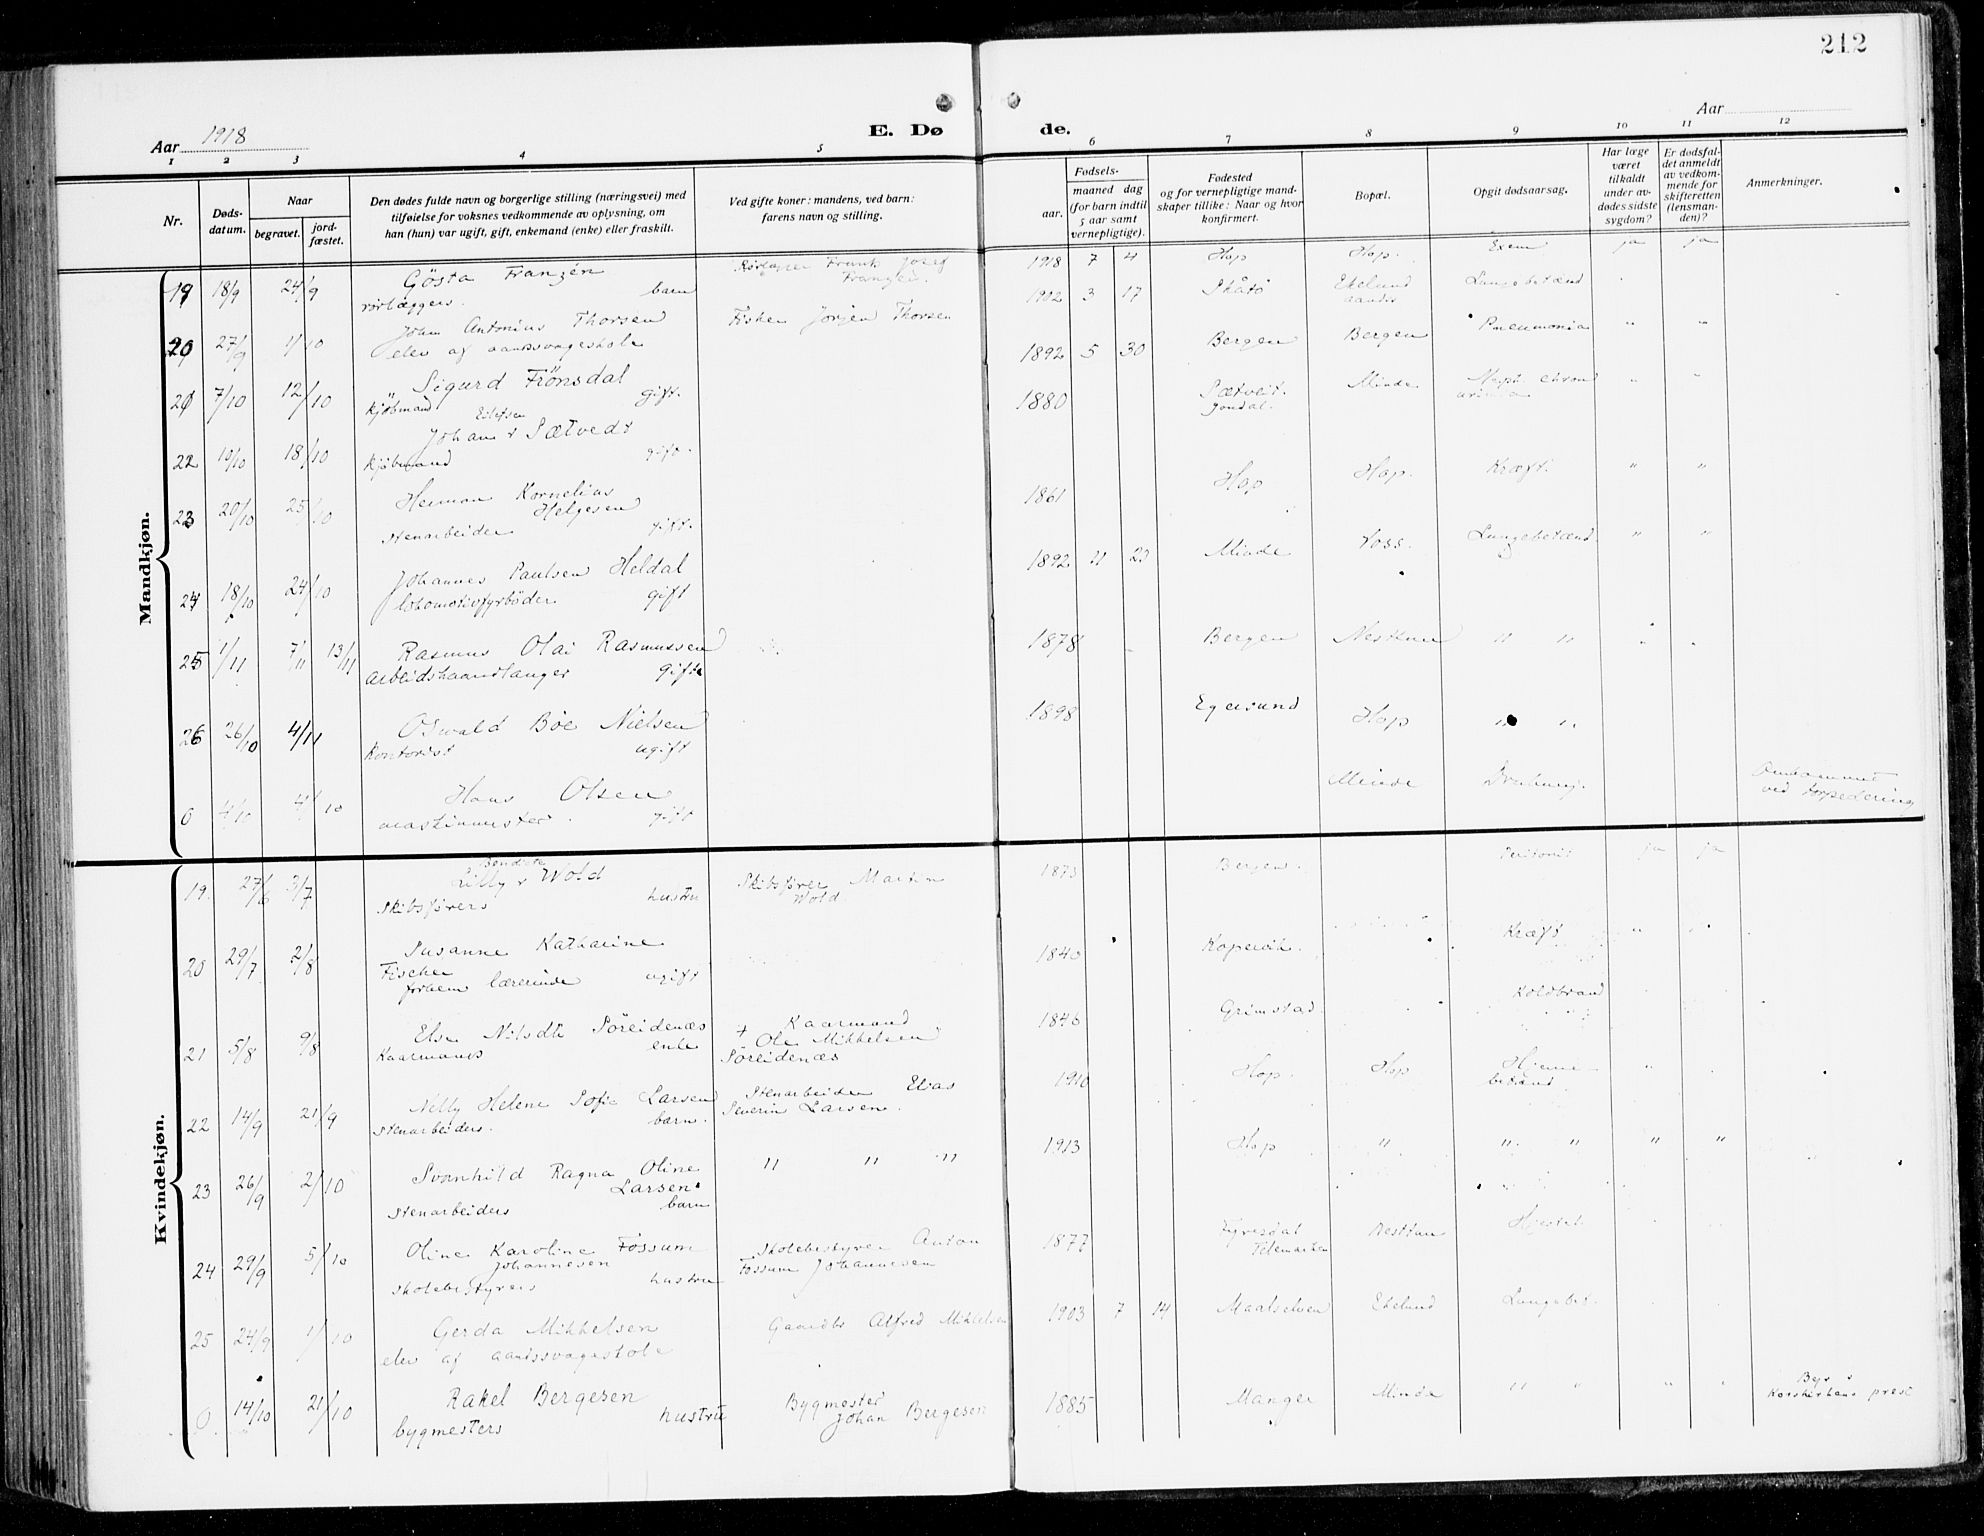 212
Aar 1918
E. Dø
de.
Aar
1 2 3 4 5 6 7 8 9 10 11 12
Nr.
Døds-
datum.
Naar
begravet.
jord-
fæstet.
Den dødes fulde navn og borgerlige stilling (næringsvei) med
tilføielse for voksnes vedkommende av oplysning, om
han (hun) var ugift, gift, enkemand (enke) eller fraskilt.
Ved gifte koner: mandens, ved barn:
farens navn og stilling.
Fødsels-
aar.
maaned dag
(for barn indtil
5 aar samt
vernepligtige).
Fødested
og for vernepligtige mand-
skaper tillike: Naar og hvor
konfirmert.
Bopæl.
Opgit dødsaarsag.
Har læge
været
tilkaldt
under av-
dødes sidste
sygdom?
Er dødsfal-
det anmeldt
av vedkom-
mende for
skifteretten
(lensman-
den)?
Anmerkninger.
Mandkjøn.
19 18/9 24/9 Gösta Franzén Frank Josef Franzén. 1918 7 4 Hop Hop. Exem ja ja
rørlæggers. barn
20 27/9 1/10 John Antonius Thorsen Fisker Jörgen Thorsen 1902 3 17 Skåtö Ekelund Lungebetænd
elev af aandssvageskole
21 7/10 12/10 Sigurd Frönsdal 1892 5 30 Bergen Bergen Pneumonia " "
kjöbmand gift.
22 10/10 18/10 Johan Eilefsen Sætvedt 1880 Sætveit. Jondal. Minde " "
kjöbmand gift.
23 20/10 25/10 Herman Kornelius Helgesen 1861 Hop Hop. Kræft. " "
stenarbeider gift.
24 18/10 24/10 Johannes Paulsen Heldal 1892 11 23 Minde Voss. Lungebetænd. " "
lokomotivfyrböder gift
25 1/11 7/11 13/11 Rasmus Olai Rasmussen 1878 Bergen Nesttun " " "
arbeidshaandlanger gift
26 26/10 4/11 Oswald Böe Nielsen 1898 Egersund Hop " "
Kontorist ugift
0 4/10 4/10 Hans Olsen Minde Omkommet
maskinmester. gift ved torpedering
Kvindekjøn.
19. 27/6 3/7 Lilly Bendicte Wold Skibsförer Martin Wold. 1873 Bergen. Peritonit ja ja
Skibsförers hustru
20 29/7 2/8 Susanne Katharine 1840 Kopervik. Kræft " "
Fischer
forhem lærerinde ugift
21 5/8 9/8 Else Nilsdtr Söreidenæs + Kaarmand 1846 Grimstad. Koldbrand
Kaarmands enke Ole Mikkelsen
Söreidenæs
22 14/9 21/9 Nelly Helene Sofie Larsen Stenarbeider Elias 1910 Hop. Hop Hjerne-
stenarbeiders. barn. Severin Larsen. betænd.
23 26/9 2/10 Svanhild Ragna Oline Larsen. " " " 1913 Hop " " " " "
stenarbeiders barn
24 29/9 5/10 Oline Karoline Fossum Skolebestyrer Anton 1877 Fyresdal Nesttun
Johannesen Fossum Johannesen Telemarken
skolebestyrers hustru
25 24/9 1/10 Gerda Mikkelsen Gaardbr Alfred Mikkelsen 1903 7 14 Maalselven Ekelund Lungebet.
elev af aandssvageskole
0 14/10 21/10 Rakel Bergesen Bygmester 1885 Manger Minde " " " "
bygmesters hustru Johan Bergesen
Korskirkens prest